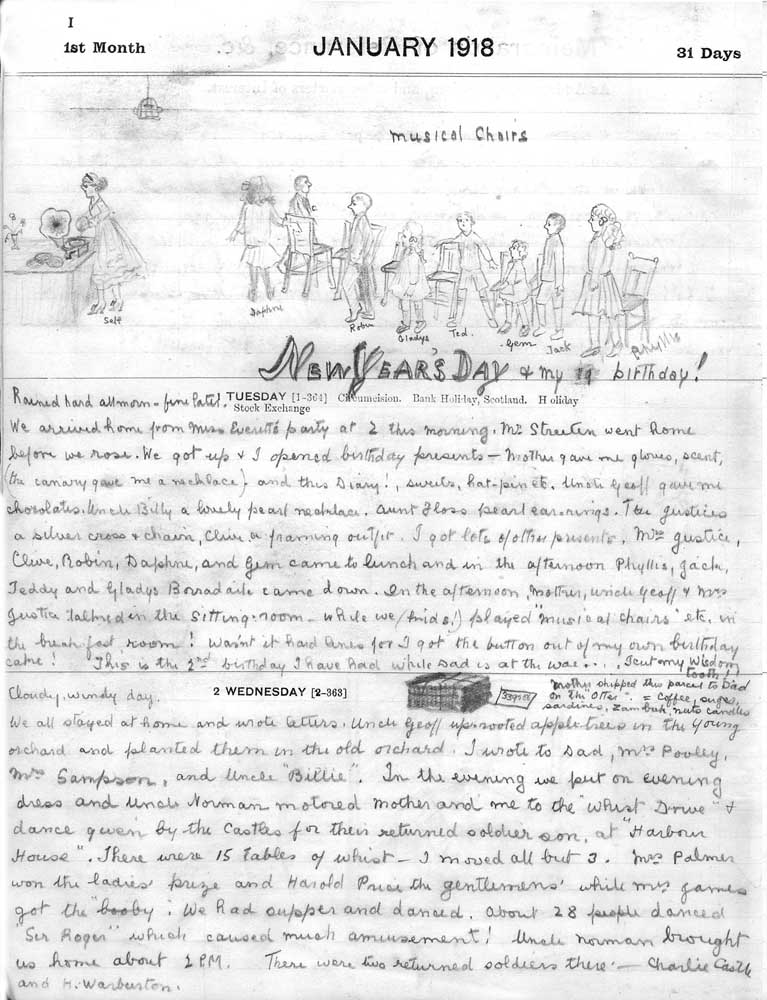 I
1st Month
JANUARY 1918
31 Days
Musical Chairs
C.
Self
Daphne
Robin
Gladys
Ted.
Gem
Jack
Phyllis
NEW YEAR'S DAY & my 19 birthday!
Rained hard all morn - fine later!
TUESDAY [1-364] Circumcision. Bank Holiday, Scotland. Holiday
Stock Exchange
We arrived home from Miss Everett's party at 2 this morning. Mr Streeten went home
before we rose. We got up & I opened birthday presents - Mother gave me gloves, scent,
(the canary gave me a necklace) and this Diary!, sweets, hat-pin etc. Uncle Geoff gave me
chocolates. Uncle Billy a lovely pearl necklace. Aunt Floss pearl ear-rings. The Justices
a silver cross & chain, Clive a framing outfit. I got lots of other presents. Mrs Justice,
Clive, Robin, Daphne, and Gem came to lunch and in the afternoon Phyllis, Jack,
Teddy and Gladys Borradaile came down. In the afternoon, Mother, Uncle Geoff & Mrs
Justice talked in the sitting-room - while we (kids!) played "musical chairs" etc. in
the breakfast room! Wasn't it hard lines for I got the button out of my own birthday
cake! This is the 2nd birthday I have had while Dad is at the war.... I cut my Wisdom
tooth!!
2 WEDNESDAY [2-363]
Cloudy, windy day.
Mother shipped this parcel to Dad
on the "Otter". = Coffee, sugar,
sardines, Zambuk, nuts candles
We all stayed at home and wrote letters. Uncle Geoff up-rooted apple-trees in the young
orchard and planted them in the old orchard. I wrote to Dad, Mrs Pooley,
Mrs Sampson, and Uncle "Billie". In the evening we put on evening
dress and Uncle Norman motored Mother and me to the "Whist Drive" &
dance given by the Castles for their returned soldier son, at "Harbour
House". There were 15 tables of whist - I moved all but 3. Mrs Palmer
won the ladies' prize and Harold Price the gentlemens' while Mrs James
got the "booby". We had supper and danced. About 28 people danced
"Sir Roger" which caused much amusement! Uncle Norman brought
us home about 2 P.M. There were two returned soldiers there - Charlie Castle
and H. Warburton.